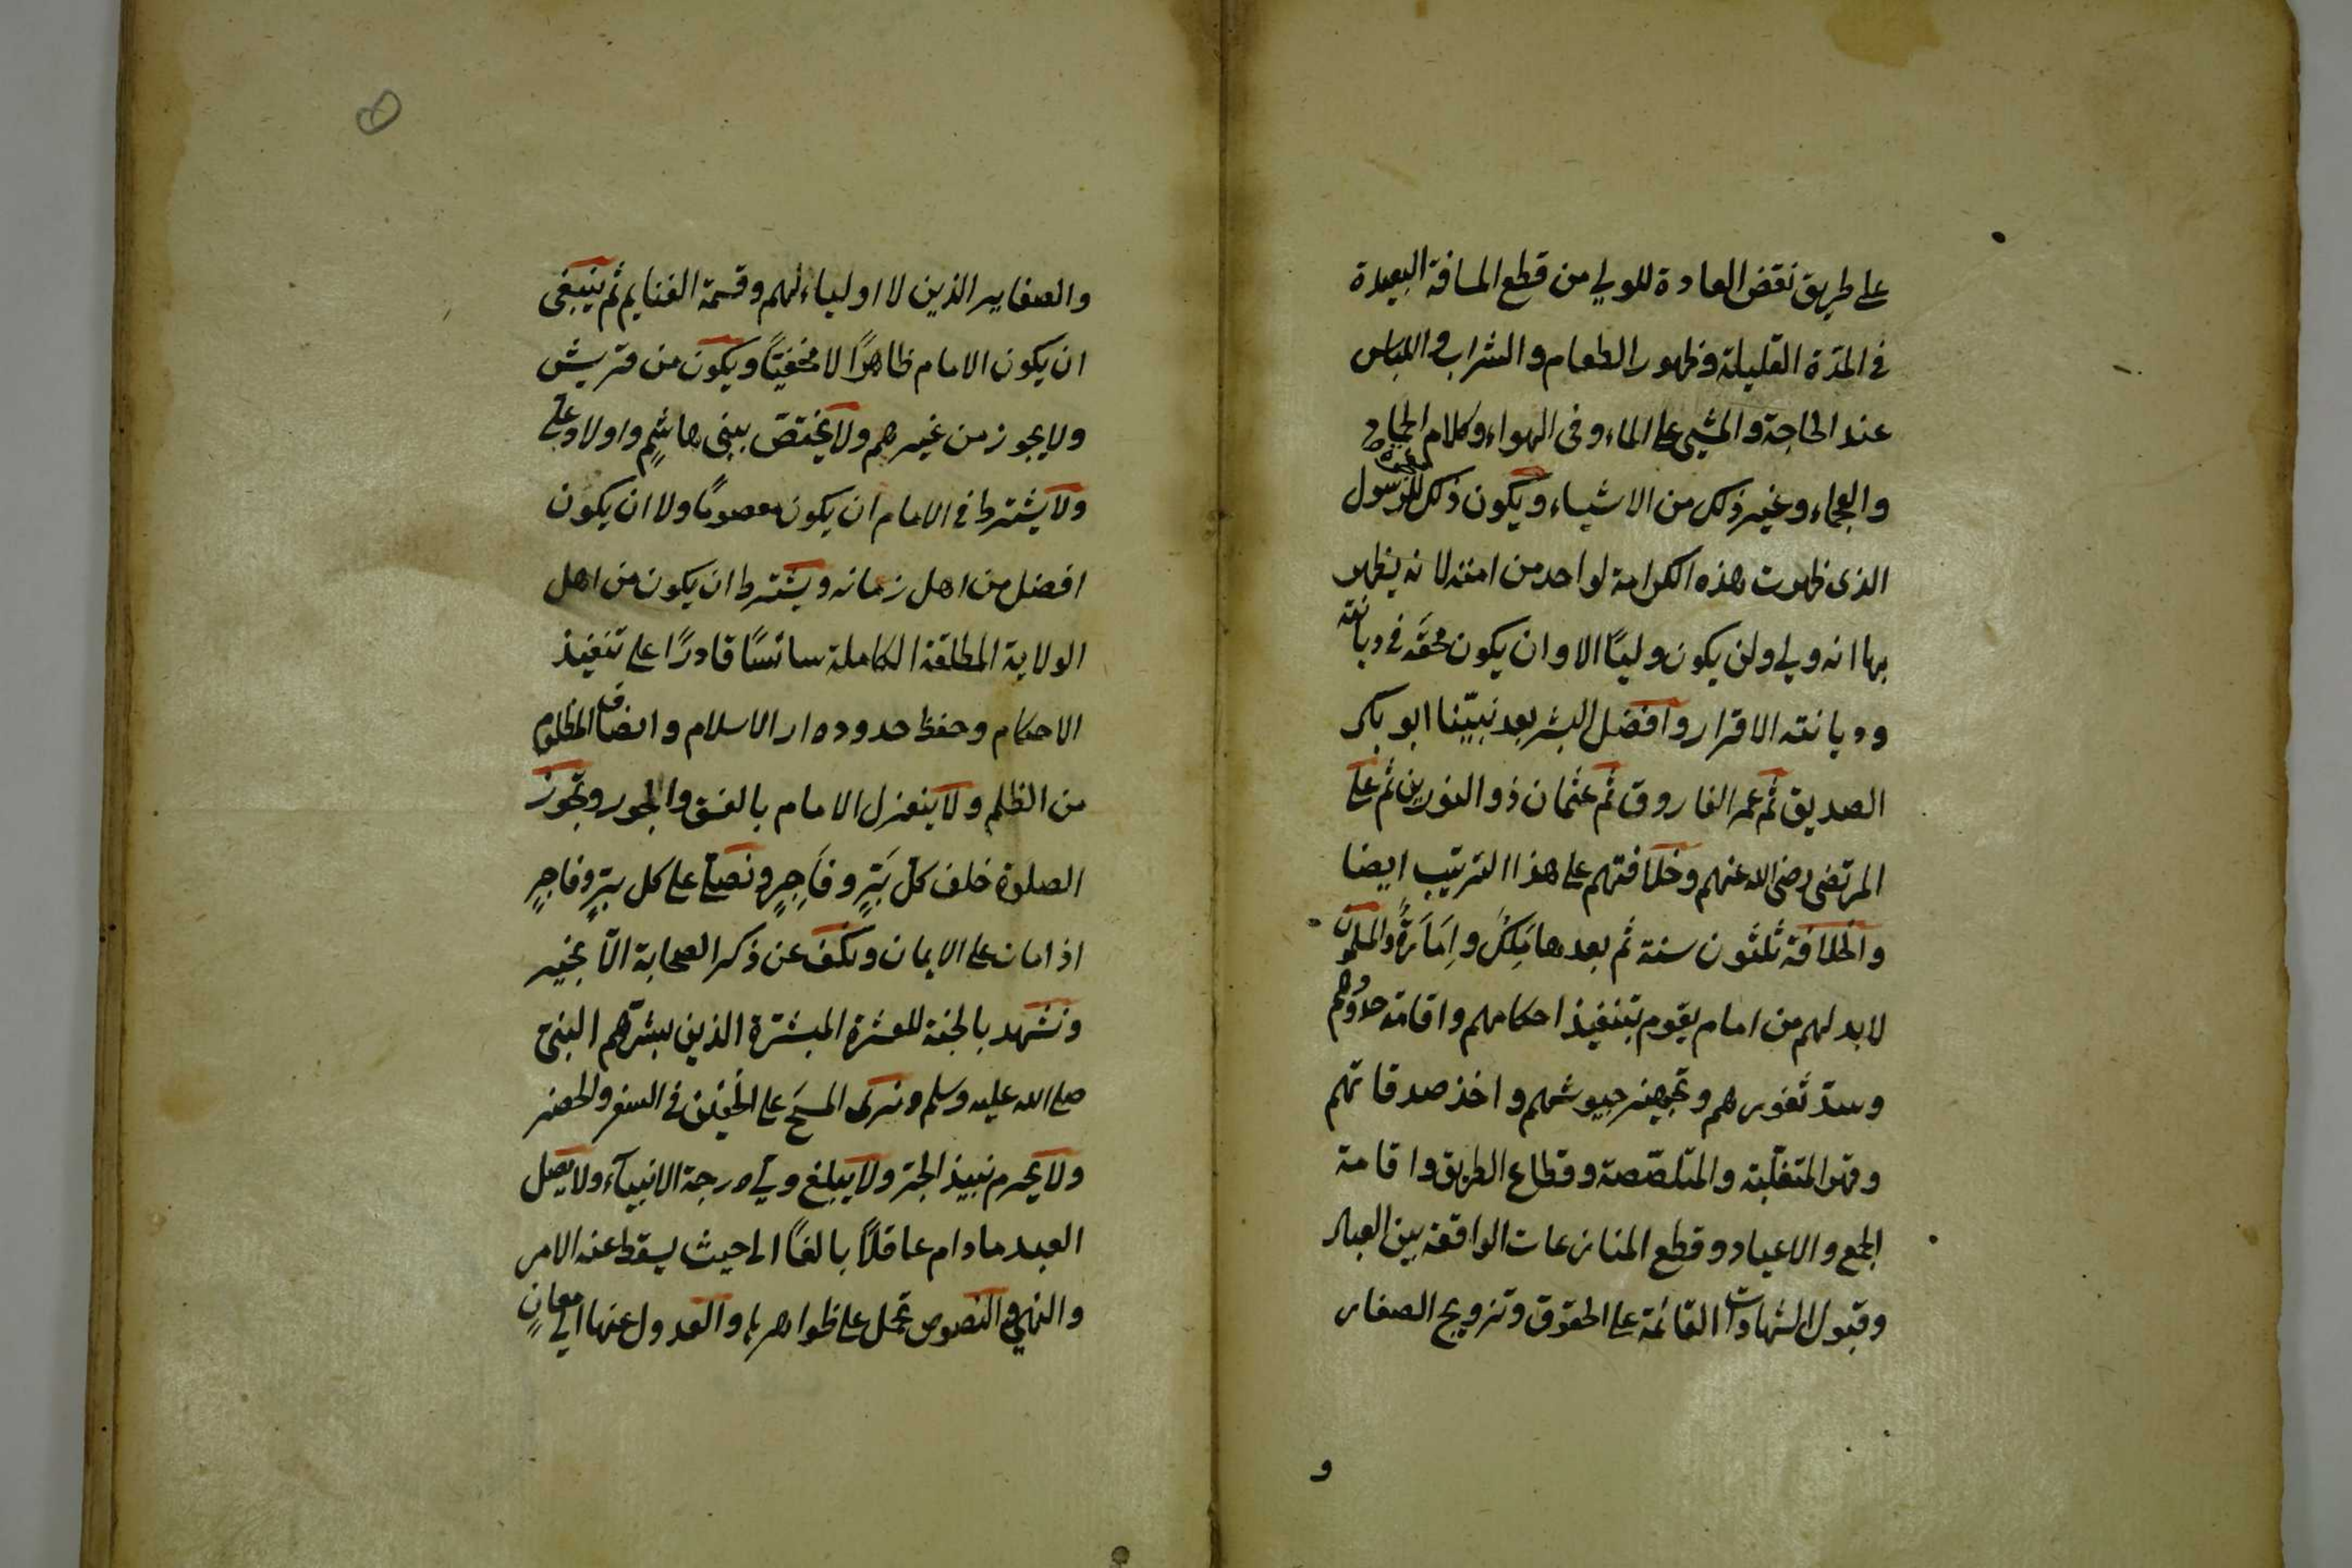 على طريق نقض العادة للولي من قطع المسافة البعيدة
في المدّة القليلة وظهور الطعام والشراب واللباس
عند الحاجة والمشي على الماء وفى الهواء وكلام الجماد
والعجماء وغير ذلك من الاشياء ويكون ذلك معجزة للرسول
الذى ظهرت هذه الكرامة لواحد من امته لانه يظهر
بها انه ولي ولن يكون وليًا الا وان يكون محقّه في ديانته
وديانته الاقرار وافضل البشر بعد نبيّنا ابو بكر
الصديق ثم عمر الفاروق ثم عثمان ذو النورين ثم على
المرتضى رضى الله عنهم وخلافتهم على هذا الترتيب ايضا
والخلافة ثلثون سنة ثم بعدها مَلِكٌ واِمَارَةٌ والمسلمون
لابد لهم من امام يقوم بتنفيذ احكامهم واقامة حدودهم
وسدّ ثغورهم وتجهيز جيوشهم واخذ صدقاتهم
وقهر المتغلّبة والمتلصّصة وقطاع الطريق واقامة
الجمع والاعياد وقطع المنازعات الواقعة بين العباد
وقبول الشهادات القائمة على الحقوق وتزويج الصغار
و
والصغاير الذين لا اولياء لهم وقسمة الغنايم ثم ينبغى
ان يكون الامام ظاهرًا لا مختفيًا ويكون من قريش
ولا يجوز من غيرهم ولا يختصّ ببنى هاشمٍ واولاد علي
ولا يشترط في الامام ان يكون معصومًا ولا ان يكون
افضل من اهل زمانه ويشترط ان يكون من اهل
الولاية المطلقة الكاملة سائسًا قادرًا على تنفيذ
الاحكام وحفظ حدود دار الاسلام وانصاف المظلوم
من الظلم ولا ينعزل الامام بالفسق والجور وتجوز
الصلوة خلف كلّ بَرٍّ وفَاجِرٍ ونصلّى على كل برٍّ وفاجرٍ
اذا مات على الايمان ونكفّ عن ذكر الصحابة الّا بخير
ونشهد بالجنة للعشرة المبشّرة الذين بشّرهم النبىّ
صلى الله عليه وسلم ونرى المسحَ على الخُفّين في السفر والحضر
ولا يحرم نبيذ الجرّ ولا يبلغ وليّ درجة الانبيآء ولا يصل
العبد مادام عاقلاً بالغًا الى حيث يسقط عنه الامر
والنهي والنصوص تحمل على ظواهرها والعدول عنها الى معانٍ